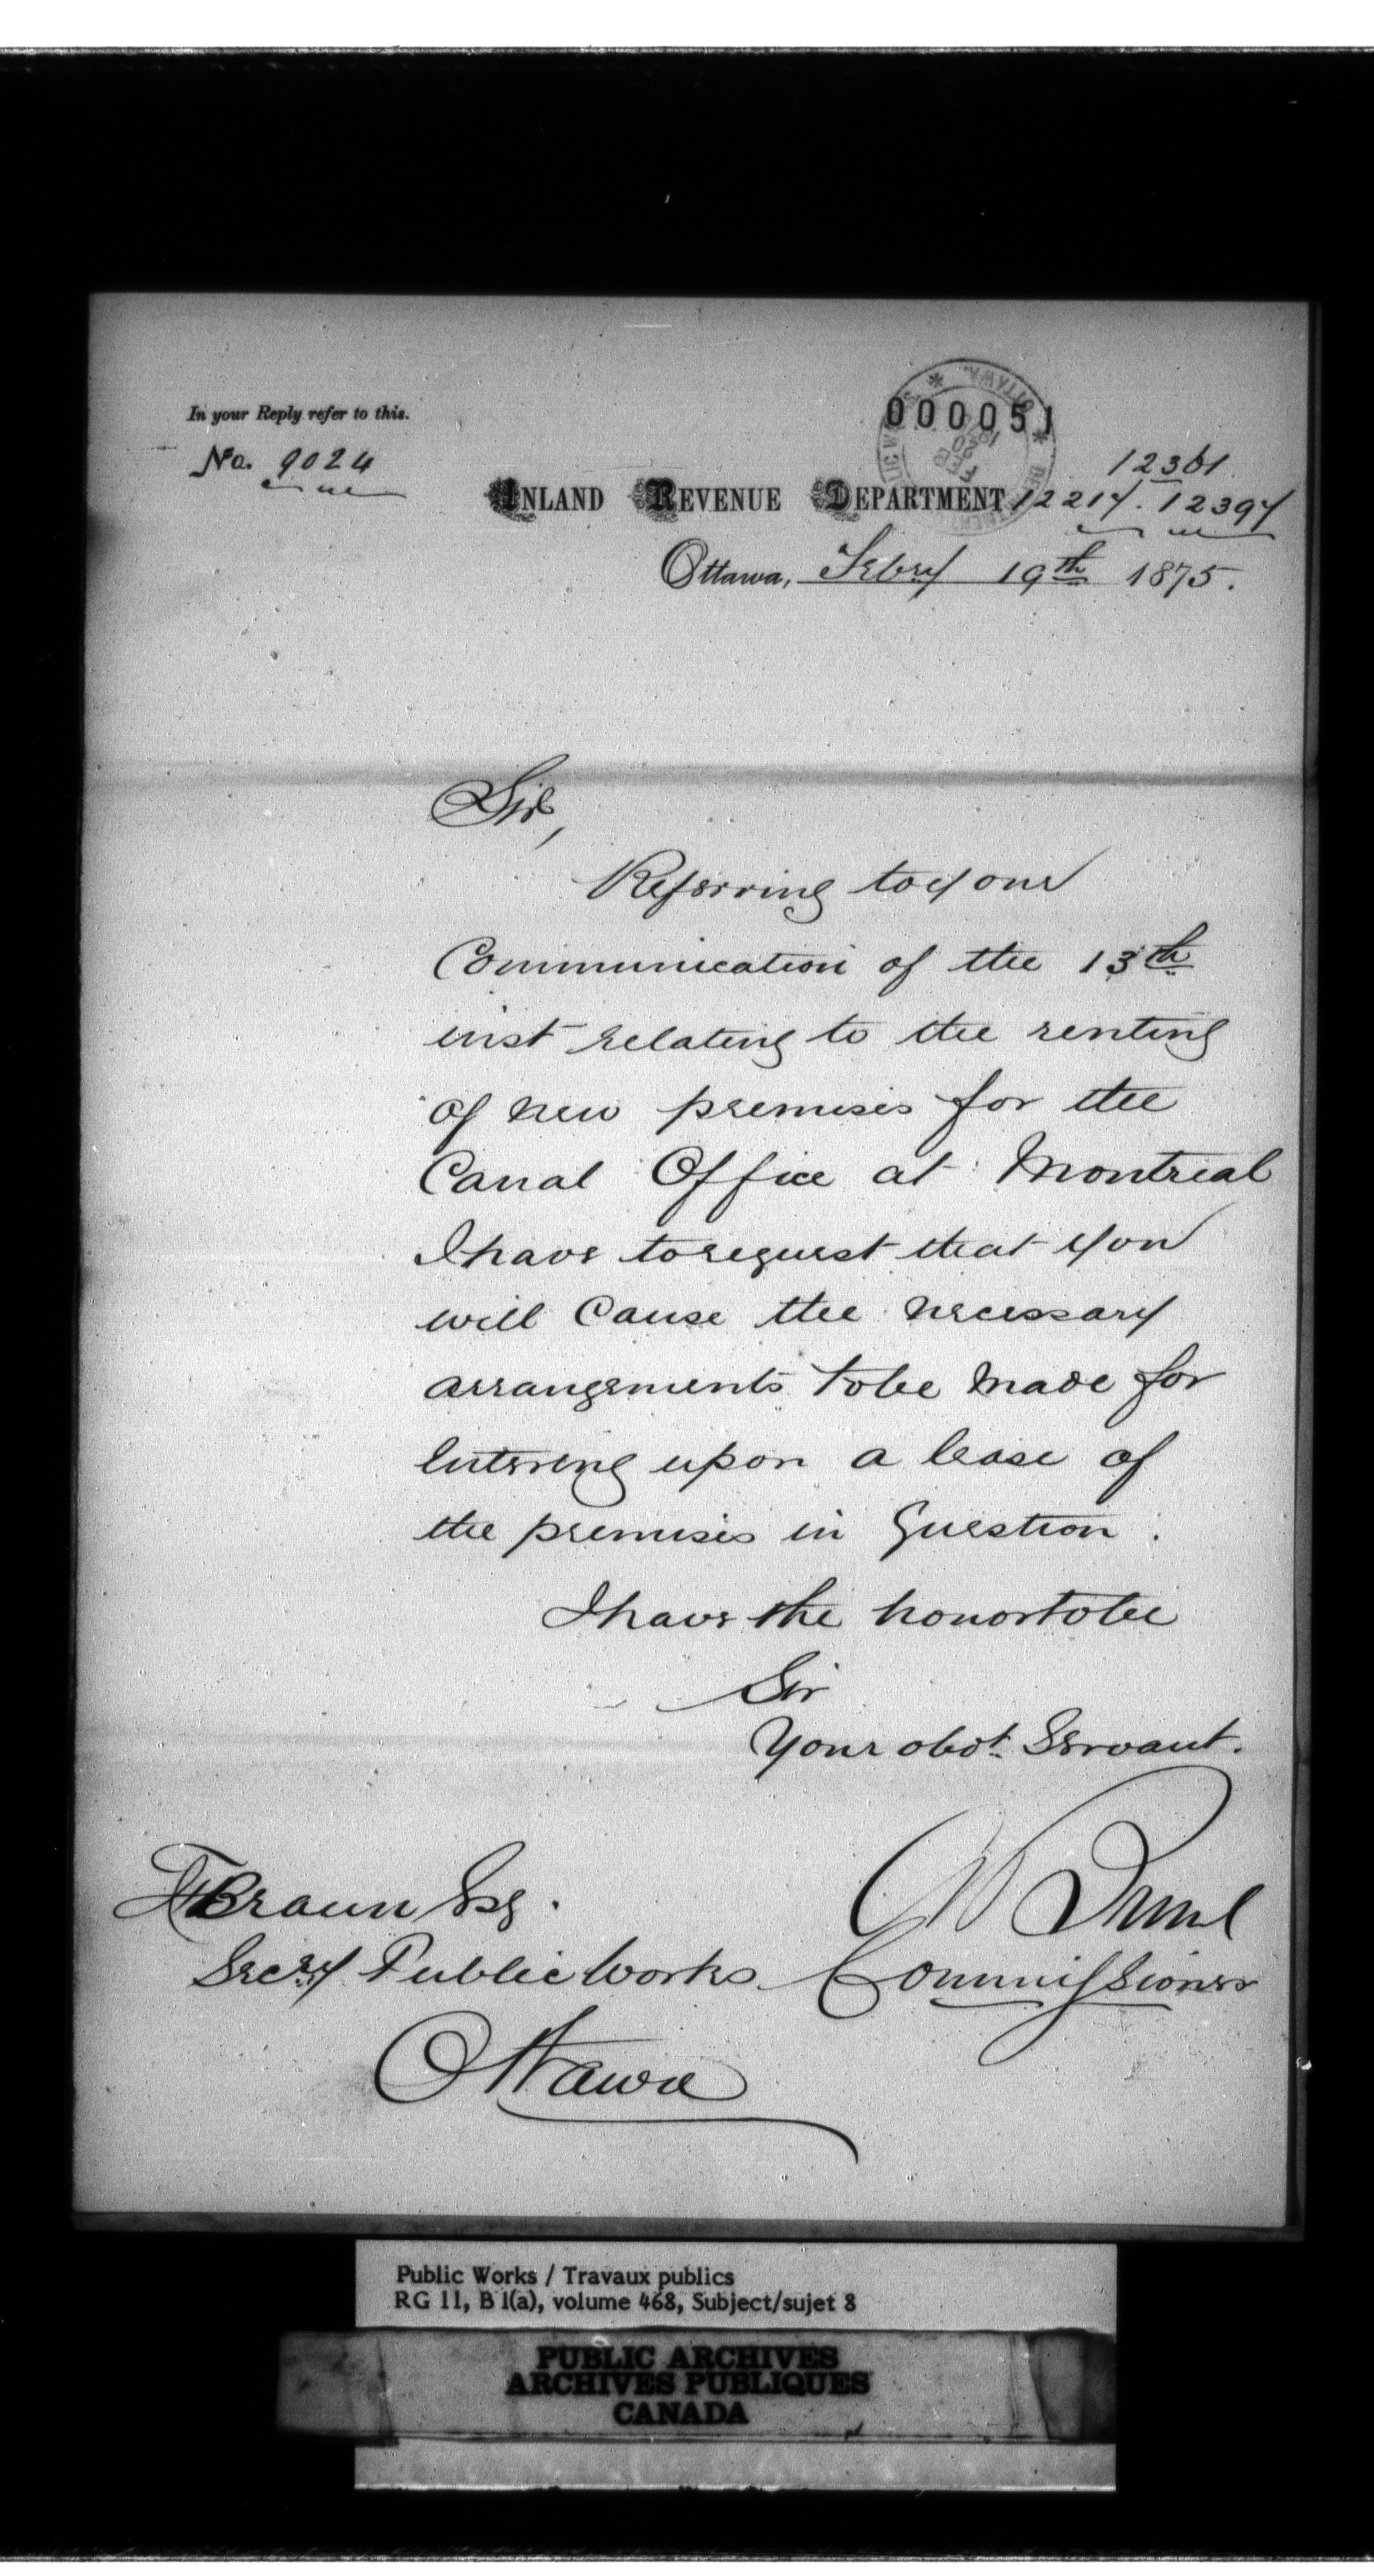 In your Reply refer to this.
No. 9024
000051
12361
INLAND REVENUE DEPARTMENT 12217. 12397
Ottawa, Febry 19th 1875.
Sir,
Referring to your
Communication of the 13th
inst relating to the renting
of new premises for the
Canal Office at Montreal
I have to request that you
will Cause the necessary
arrangements to be made for
Entering upon a lease of
the premises in Question.
I have the honor to be
Sir
Your obdt. Servant.
Commissioner
F Braun Esq.
Secry. Public Works
Ottawa
Public Works / Travaux publics
RG 11, B 1(a), volume 468, Subject/sujet 8
PUBLIC ARCHIVES
ARCHIVES PUBLIQUES
CANADA